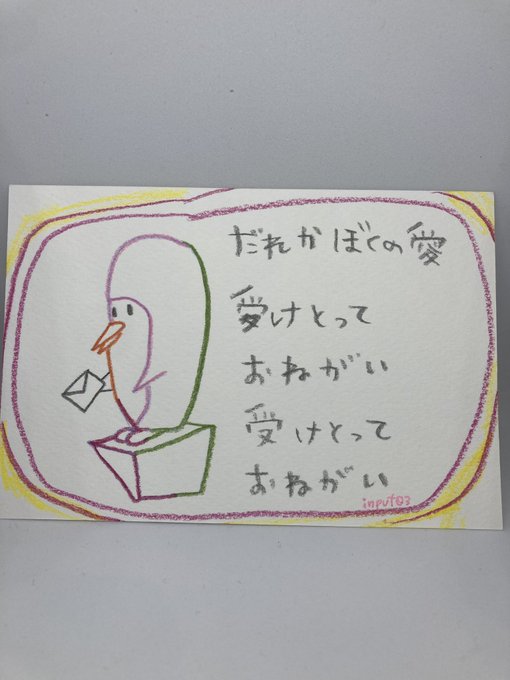 だれかぼくの愛
愛けとって
おねがい
受けとって
おねがい
input03